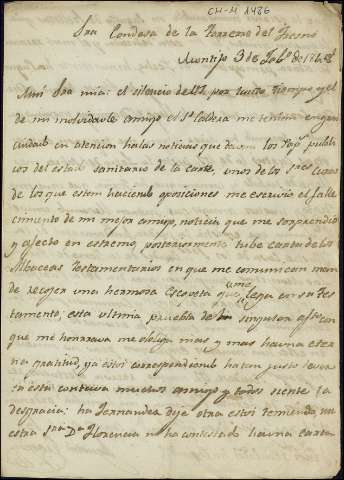 CM-M 1486
Sra Condesa de la Torre del Fresno
Montijo 3 de Feb.º de
Mui Sra mia: el silencio de Vd. por tanto tiempo y el
de mi inolvidable amigo el Sr Caldera me tenian en gran
cuidado en atencion ha las noticias que davan los Pap.s publi
cos del estado sanitario de la Corte, unos de los Sres Curas
de los que estan haciendo oposiciones me escrivio el falle
cimiento de mi mejor amigo, noticia que me sorprendio
y afecto en estremo, posteriormente tube carta de los
Albaceas Testamentarios en que me comunican man
de recojer una hermosa Escopeta que me lega en su Tes
tamento, esta ultima prueba de singular afecto con
que me honrrava me obliga mas y mas ha una eter
na gratitud, ya estoi correspondiendo ha tan justo
en esta contava muchos amigos y todos siente la
desgracia: ha Fernandez dije otra estoi temiendo, nu
estra Sra Dª Florencia no ha contestado ha una carta